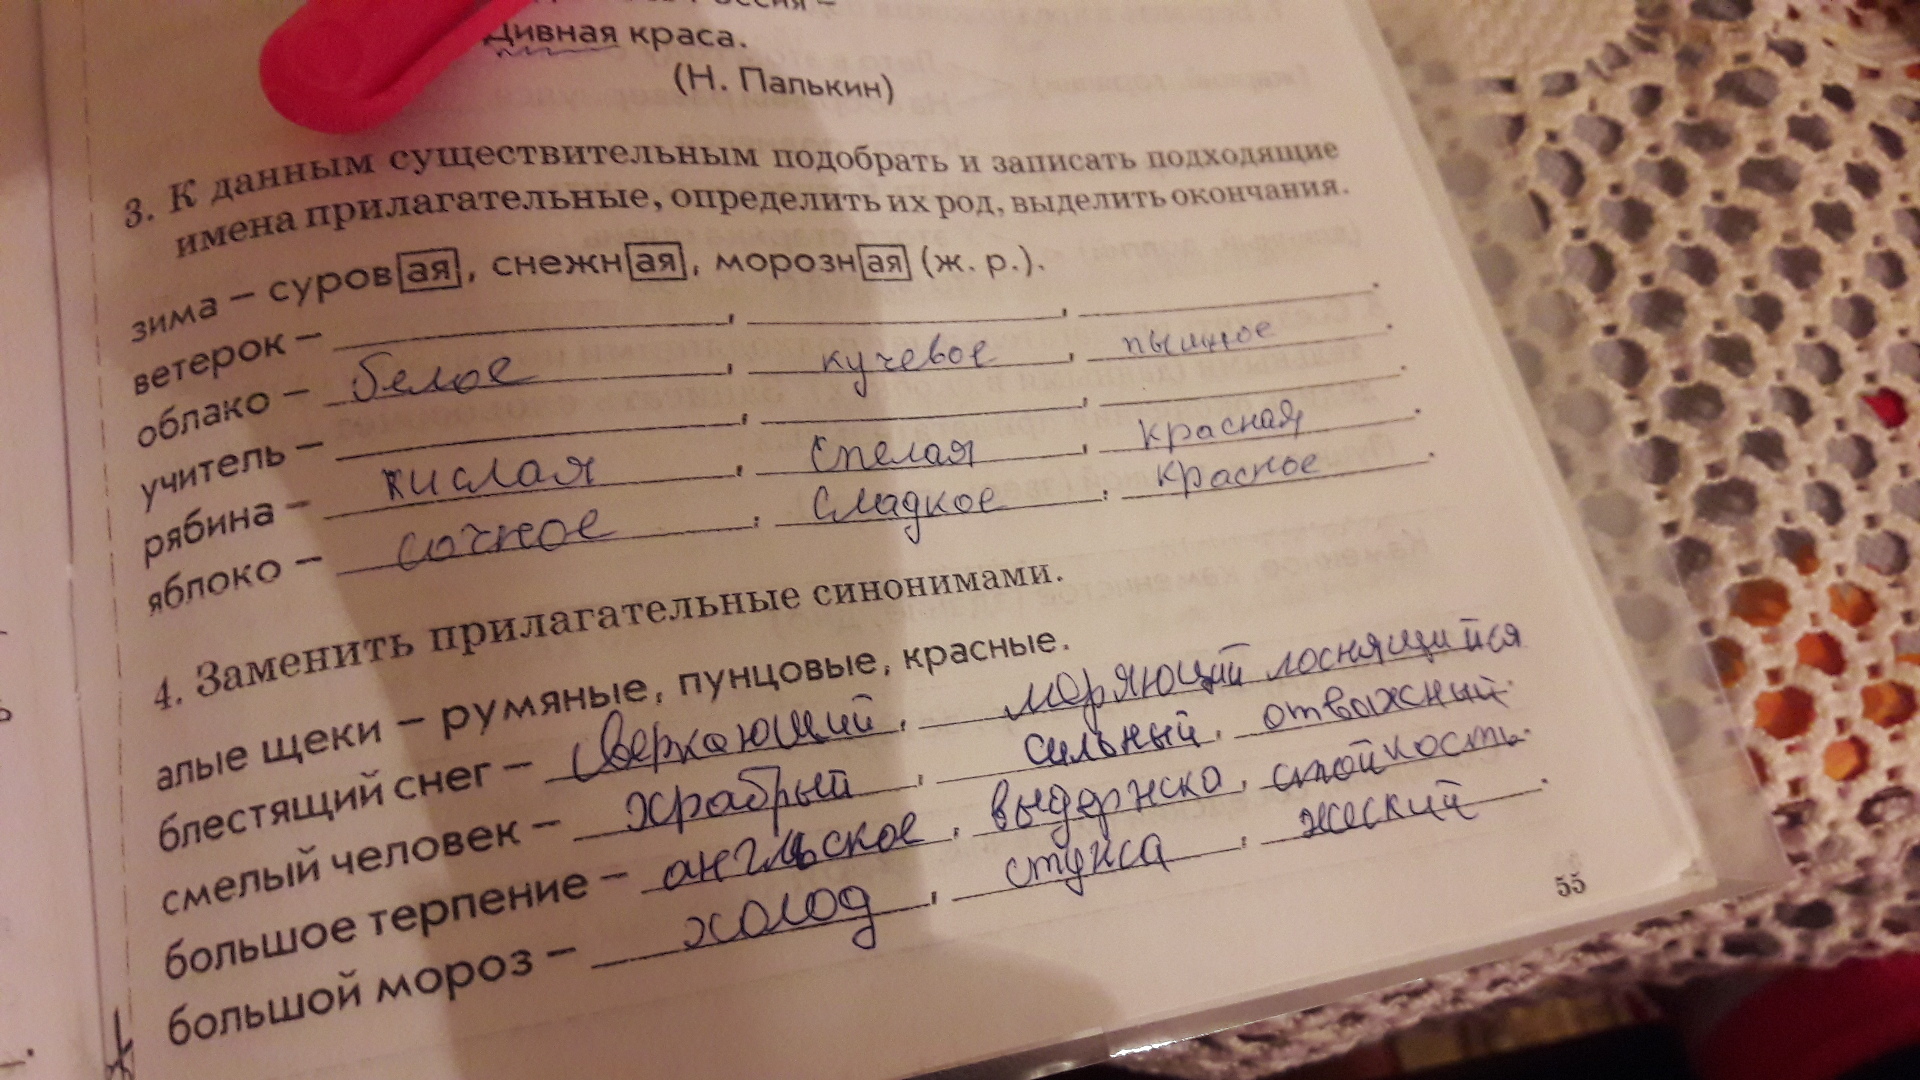 Дивная краса.
(Н. Палькин)
3. К данным существительным подобрать и записать подходящие
имена прилагательные, определить их род, выделить окончания.
зима – суровая, снежная, морозная (ж. р.).
ветерок – , , .
облако – белое, кучевое, пышное.
учитель – , , .
рябина – кислая, спелая, красная.
яблоко – сочное, сладкое, красное.
4. Заменить прилагательные синонимами.
алые щеки – румяные, пунцовые, красные.
блестящий снег – сверкающий, лоснящийся
смелый человек – храбрый, сильный, отвыжный.
большое терпение – ангельское, выдержка, стойкость.
большой мороз – холод, стужа, жеский.
55